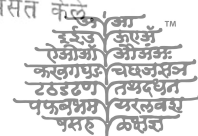 सत केले.
अ आ ™
इ ई उ ऊ ए ॲ
ऐ ओ औ ऑ अं अः
क ख ग घ ङ च छ ज झ ञ
ट ठ ड ढ ण त थ द ध न
प फ ब भ म य र ल व श
ष स ह ळ क्ष ज्ञ